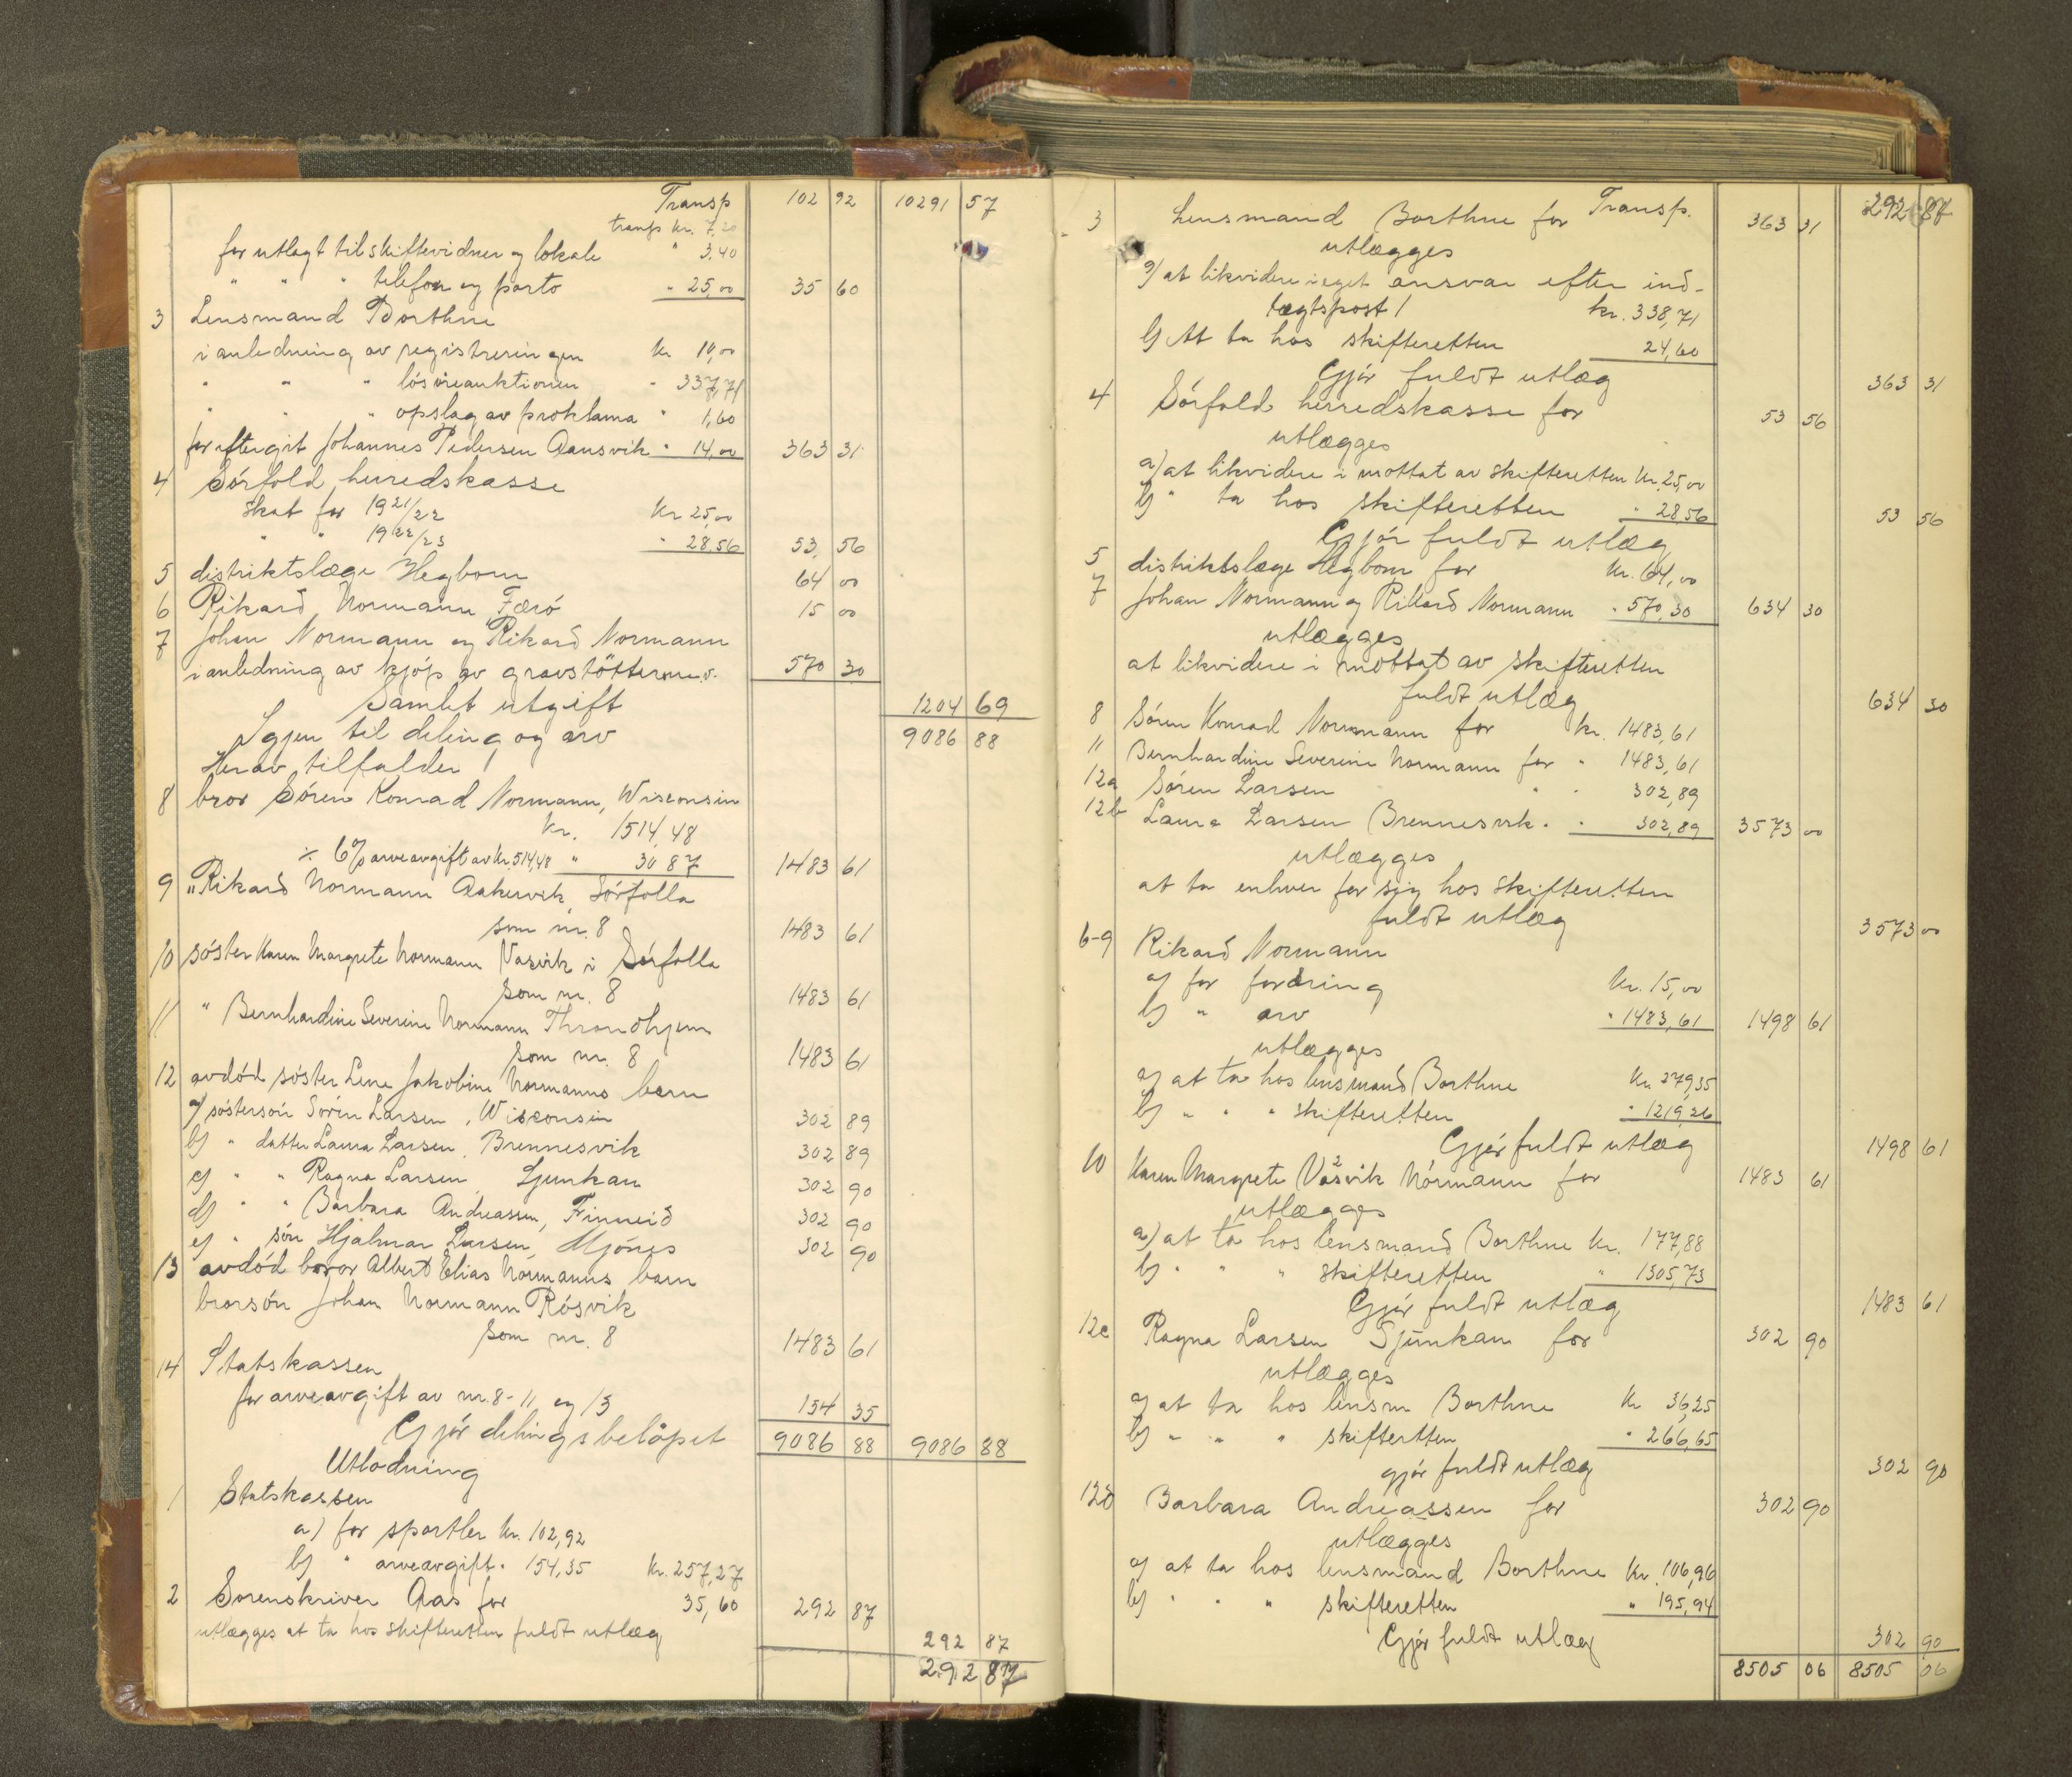 Transp 102 92 10291 57
transp kr. 7.20
for utlagt til skiftevidner og lokale " 3.40
" " " telefon og porto " 25,00 35 60
3 Lensmand Borthne
i anledning av registreringen kr 10,00
" " " lösöreauktionen " 337,71
" " " opslag av proklama " 1,60
for eftergit Johannes Pedersen Aansvik " 14,00 363 31
4 Sörfold herredskasse
skat for 1921/22 kr 25,00
" " 1922/23 " 28,56 53, 56
5 distriktslæge Hegbom 64 00
6 Rikard Normann, Færö 15 00
7 Johan Normann og Rikard Normann
i anledning av kjöp av gravstötter m.v. 570 30
Samlet utgift 1204 69
Igjen til deling og arv 9086 88
Herav tilfalder
8 bror Sören Konrad Normann, Wisconsin
kr. 1514,48
÷ 6% arveavgift av kr. 514,48 " 30 87 1483 61
9 " Rikard Normann Aakervik, Sörfolla
som nr. 8 1483 61
10 söster Karen Margrete Normann Vasvik i Sörfolla
som nr. 8 1483 61
11 " Bernhardine Severine Normann Throndhjem
som nr. 8 1483 61
12 avdöd söster Lene Jakobine Normanns barn
a) söstersön Sörin Larsen, Wisconsin 302 89
b) " datter Laura Larsen, Brennesvik 302 89
c) " " Ragna Larsen Sjunkan 302 90
d) " " Barbara Andreassen, Finneid 302 90
e) " sön Hjalmar Larsen, Mjönes 302 90
13 avdöd bror Albert Elias Normanns barn
brorsön Johan Normann Rösvik
som nr. 8 1483 61
14 Statskassen
for arveavgift av nr. 8-11 og 13 154 35
Gjör delingsbelöpet 9086 88 9086 88
Utlodning
1 Statskassen
a) for sportler kr. 102,92
b) " arveavgift " 154,35 kr. 257,27
2 Sorenskriver Aas for 35,60 292 87
utlægges at ta hos skifteretten fuldt utlæg
292 87
292 87
Transp. 292 87
3 Lensmand Borthne for 363 31
utlægges
a) at likvidere i eget ansvar efter ind-
tægtspost 1 kr. 338,71
b) At ta hos skifteretten 24,60
Gjör fuldt utlæg 363 31
4 Sörfold herredskasse for 53 56
utlægges
a) at likvidere i mottat av skifteretten kr. 25,00
b) " ta hos skifteretten " 28 56
Gjör fuldt utlæg 53 56
5 distriktslæge Hegbom for kr. 64,00
7 Johan Normann og Rikard Normann " 570,30 634 30
utlægges
at likvidere i mottat av skifteretten
fuldt utlæg 634 30
8 Sören Konrad Normann for kr. 1483,61
11 Bernhardine Severine Normann for " 1483,61
12a Sören Larsen " " 302,89
12b Laura Larsen Brennesvik " " 302,89 3573 00
utlægges
at ta enhver for sig hos skifteretten
fuldt utlæg 3573 00
6-9 Rikard Normann
a) for fordring kr. 15,00
b) " arv " 1483,61 1498 61
utlægges
a) at ta hos lensmand Borthne kr. 279,35
b) " " " skifteretten " 1219,26
Gjör fuldt utlæg 1498 61
10 Karen Margrete Vasvik Normann for 1483 61
utlægges
a) at ta hos lensmand Borthne kr. 177,88
b) " " " skifteretten " 1305,73
Gjör fuldt utlæg 1483 61
12c Ragna Larsen Sjunkan for 302 90
utlægges
a) at ta hos lensm Borthne kr 36,25
b) " " " skifteretten " 266,65
gjör fuldt utlæg 302 90
12d Barbara Andreassen for 302 90
utlægges
a) at ta hos lensmand Borthne kr. 106,96
b) " " " skifteretten " 195,94
Gjör fuldt utlæg 302 90
8505 06 8505 06